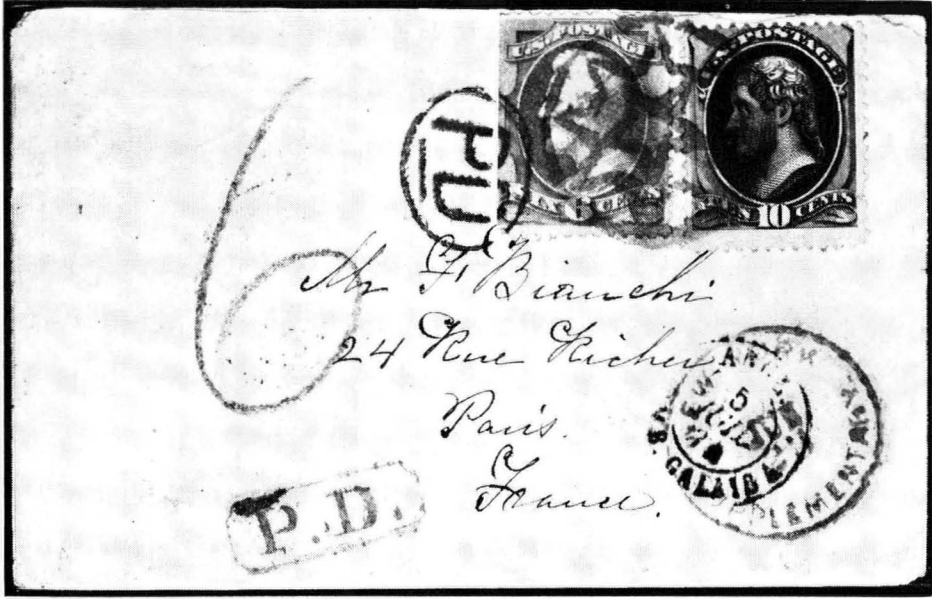 U.S. POSTAGE
U.S. POSTAGE
TEN 10 CENTS
6
Mr F. Bianchi
24 Rue Richer
Paris
France.
P.D.
5
CALAIS
SUPPLEMENTARY